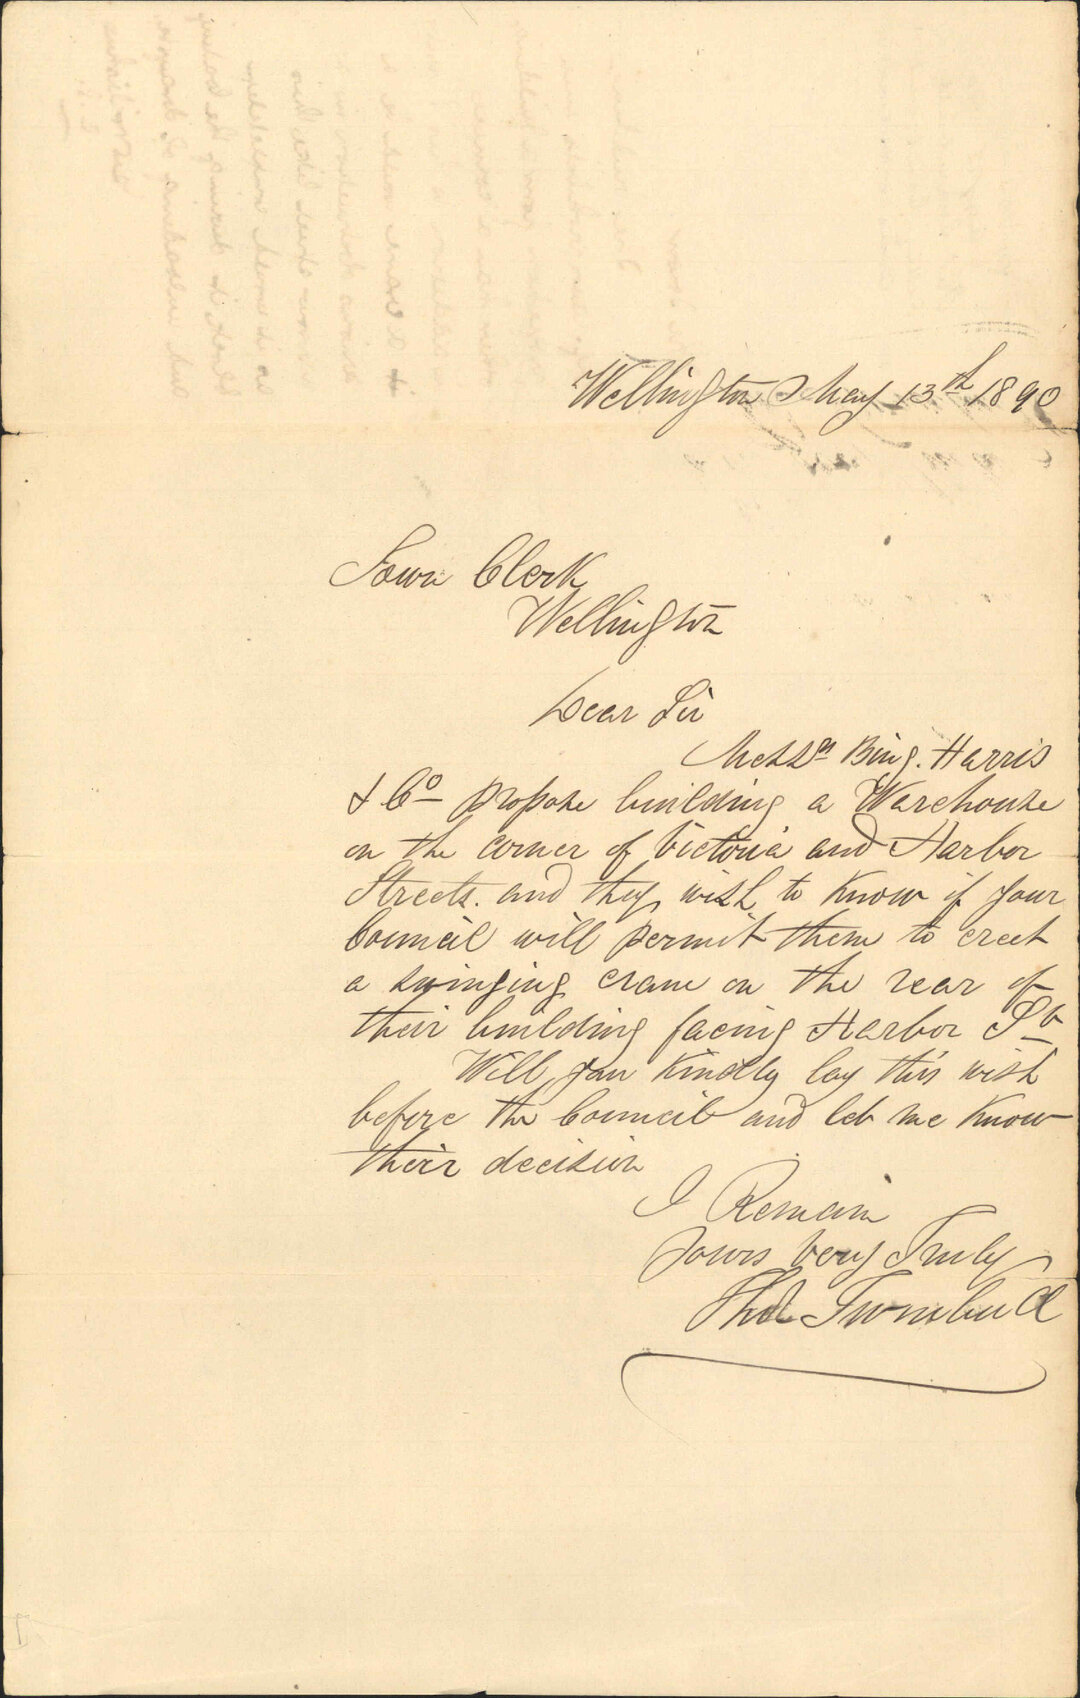 Wellington May 13th 1890
Town Clerk
Wellington
Dear Sir
Messrs Bing. Harris
& Co propose building a Warehouse
on the corner of Victoria and Harbor
Streets. and they wish to know if your
Council will permit them to erect
a swinging crane on the rear of
their building facing Harbor St
Will you kindly lay this wish
before the Council and let me know
their decision
I Remain
Yours Very Truly
Thos Turnbull